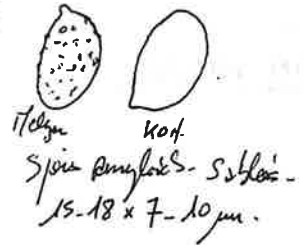 Melzer
KOH.
Spores amyloïdes - Sublisses -
15-18 x 7-10 µm.